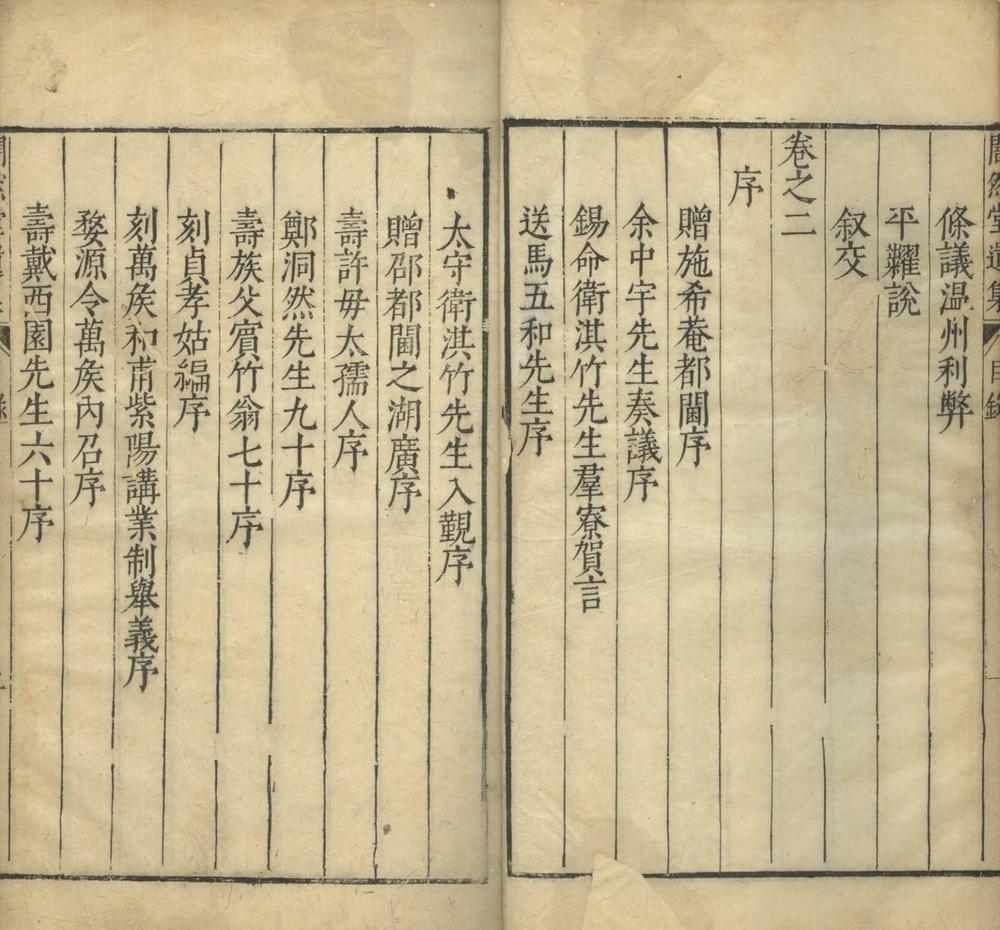 闇然堂遺集 目錄
條議温州利弊
平糶說
叙交
卷之二
序
贈施希菴都閫序
余中宇先生奏議序
錫命衛淇竹先生羣寮賀言
送馬五和先生序
太守衛淇竹先生入覲序
贈邵都閫之湖廣序
壽許毋太孺人序
鄭洞然先生九十序
壽族父賓竹翁七十序
刻貞孝姑編序
刻萬矦和甫紫陽講業制舉義序
婺源令萬矦內召序
壽戴西園先生六十序